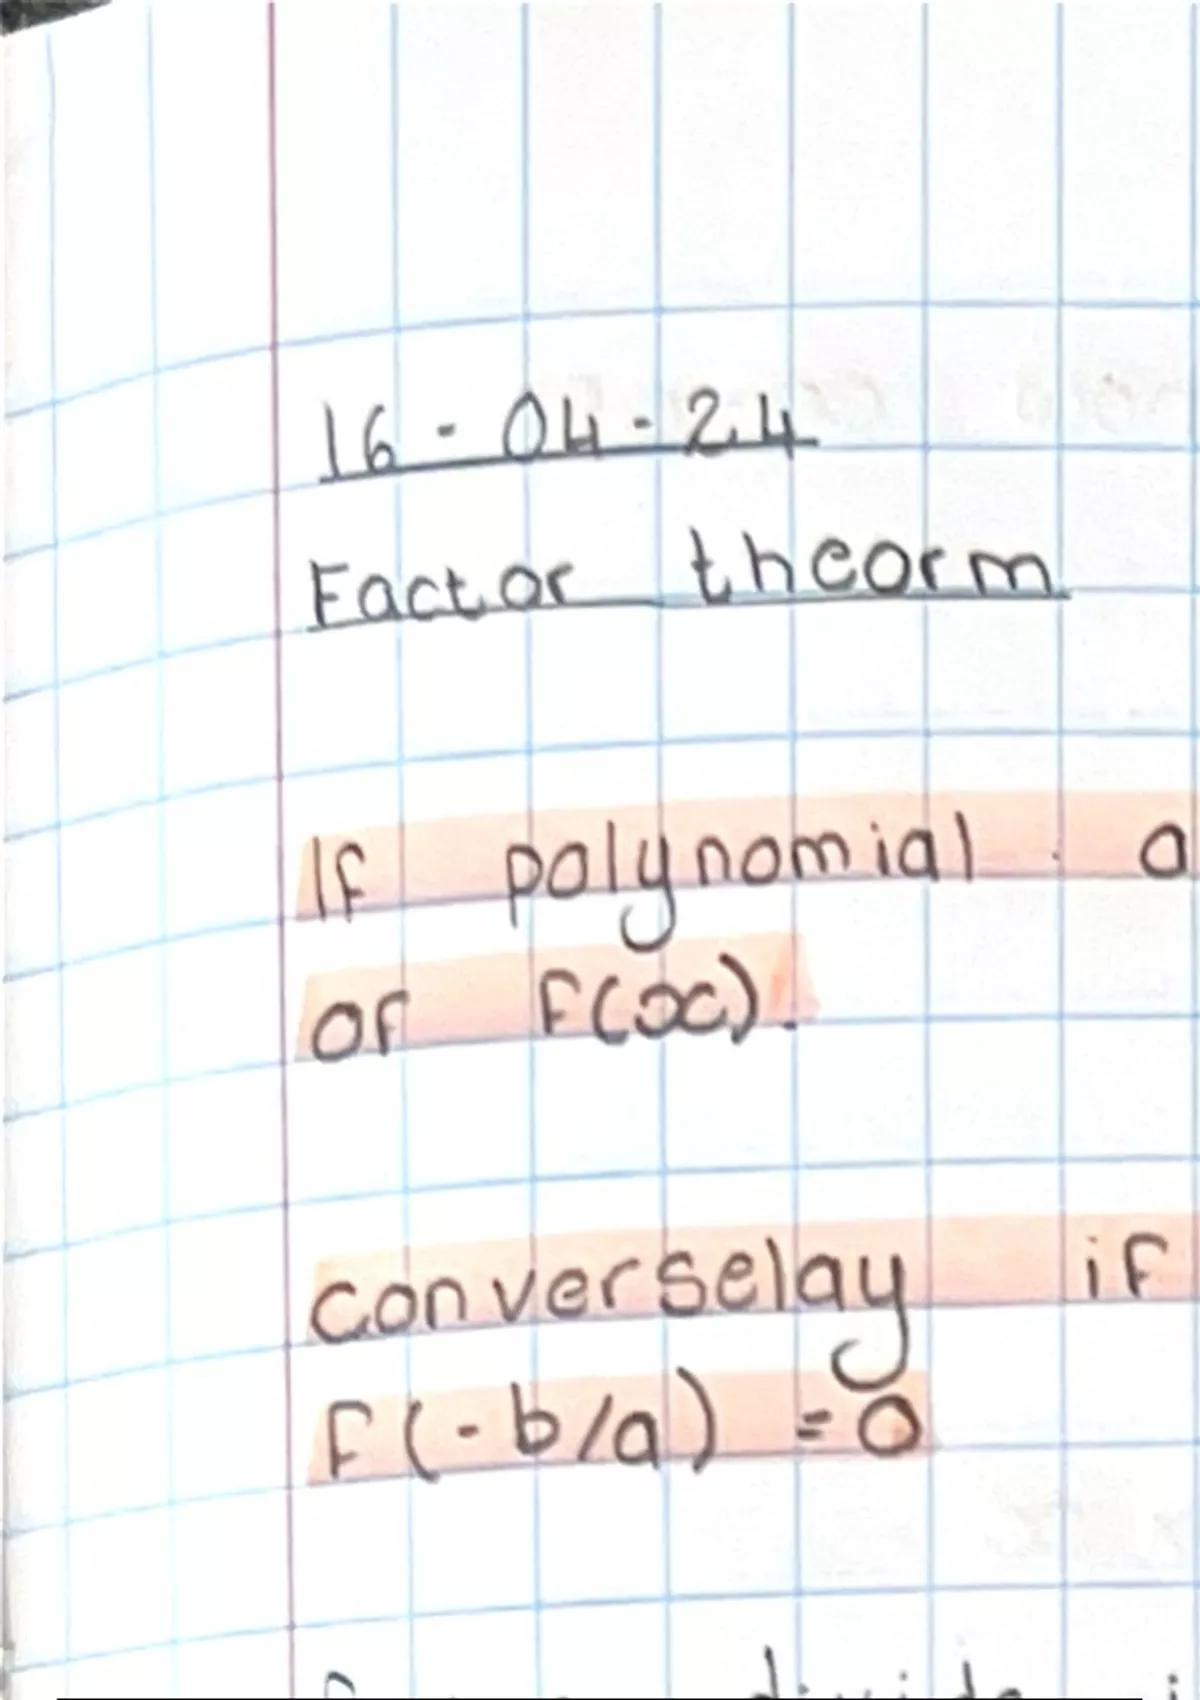 16-04-24
Factor theorm
If polynomial a
of f(x).
converselay if
f(-b/a) =0
divide